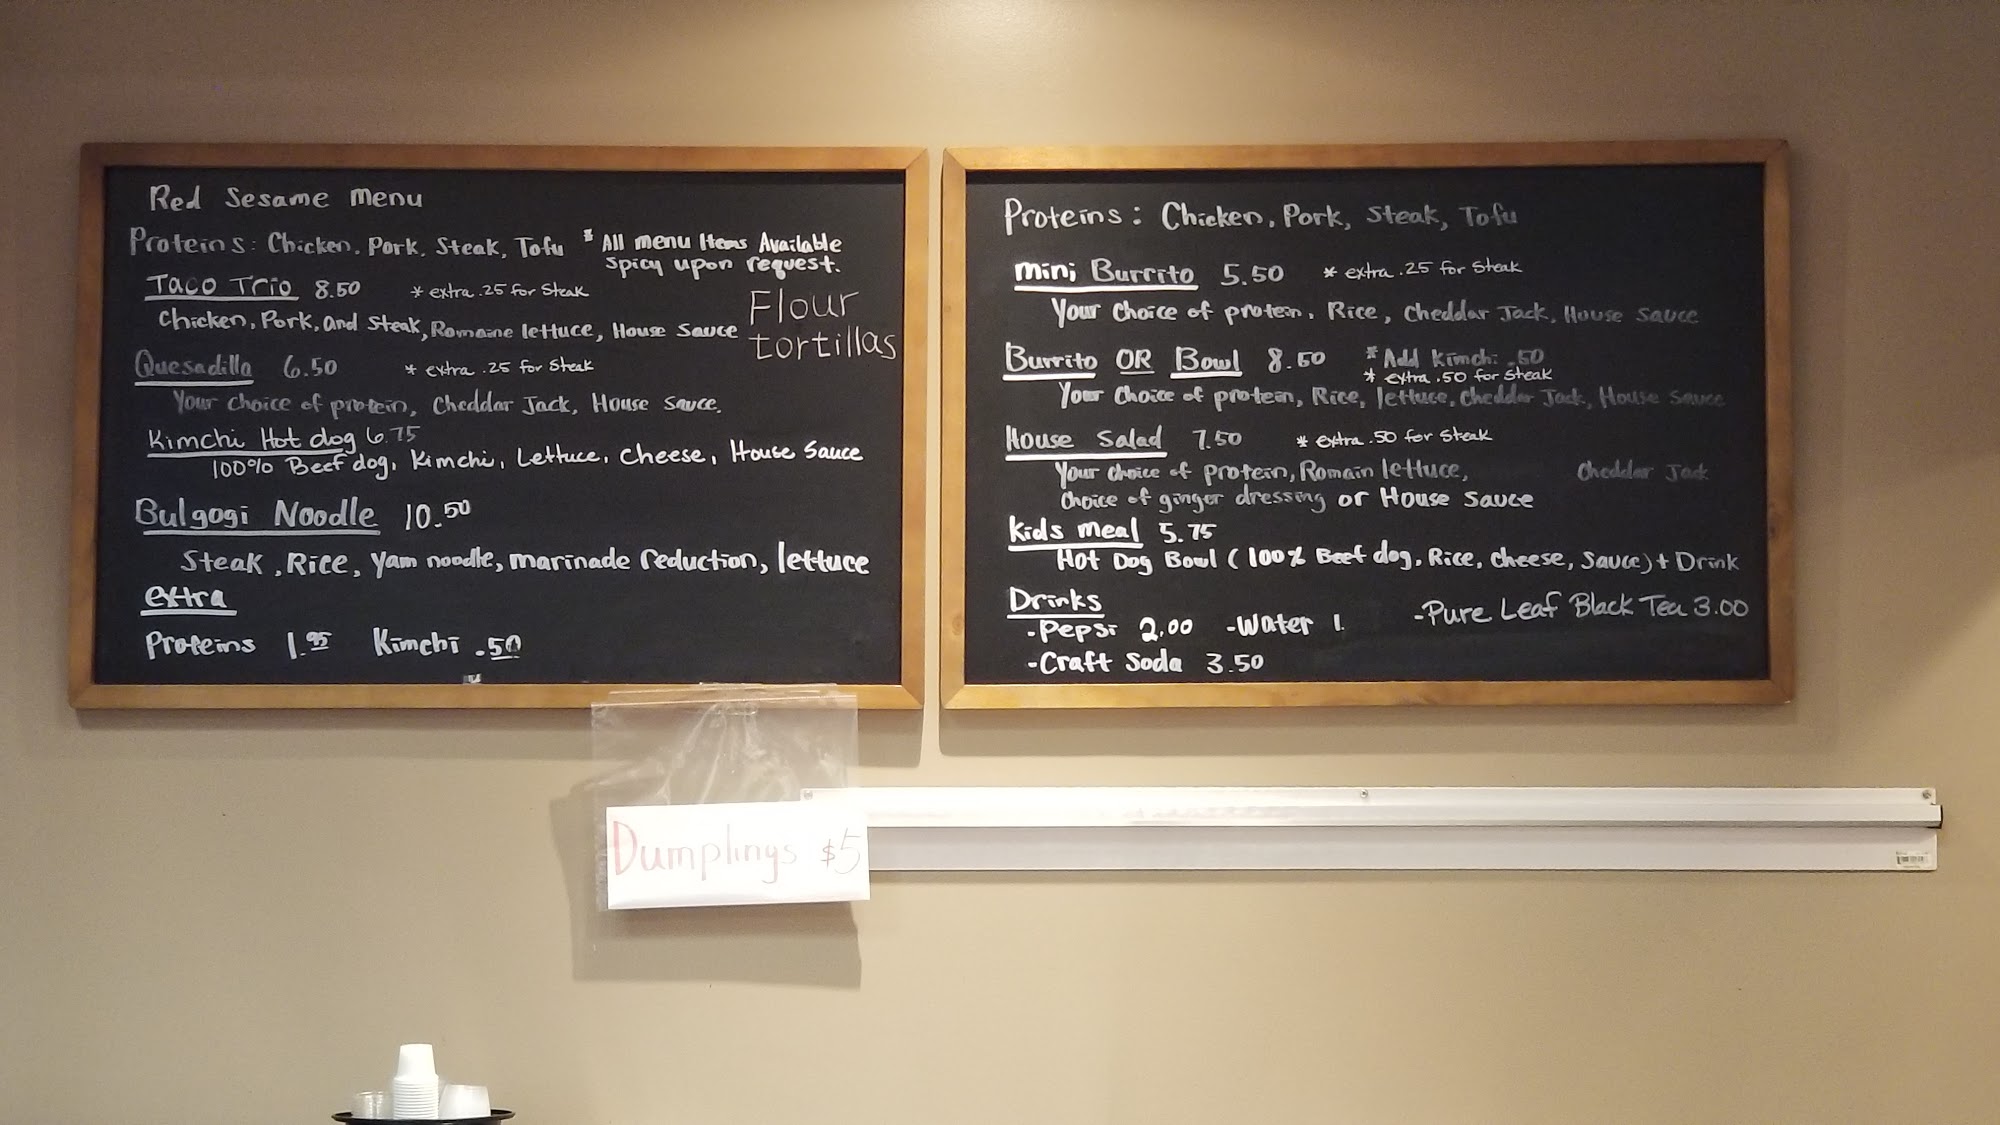 Red Sesame Menu
Proteins: Chicken, Pork, Steak, Tofu
* All menu Items Available
spicy upon request.
Taco Trio 8.50 * extra .25 for Steak
Chicken, Pork, and Steak, Romaine lettuce, House Sauce
Flour
tortillas
Quesadilla 6.50 * extra .25 for Steak
Your choice of protein, Cheddar Jack, House Sauce.
Kimchi Hot dog 6.75
100% Beef dog, Kimchi, Lettuce, Cheese, House Sauce
Bulgogi Noodle 10.50
Steak, Rice, yam noodle, marinade reduction, lettuce
extra
Proteins 1.95 Kimchi .50
Proteins: Chicken, Pork, Steak, Tofu
mini Burrito 5.50 * extra .25 for Steak
Your Choice of protein, Rice, Cheddar Jack, House Sauce
Burrito OR Bowl 8.50 * Add Kimchi .50
* extra .50 for Steak
Your Choice of protein, Rice, lettuce, Cheddar Jack, House Sauce
House Salad 7.50 * extra .50 for Steak
Your choice of protein, Romain lettuce, Cheddar Jack
Choice of ginger dressing or House Sauce
Kids meal 5.75
Hot Dog Bowl (100% Beef dog, Rice, Cheese, Sauce) + Drink
Drinks
-Pepsi 2.00 -Water 1. -Pure Leaf Black Tea 3.00
-Craft Soda 3.50
Dumplings $5